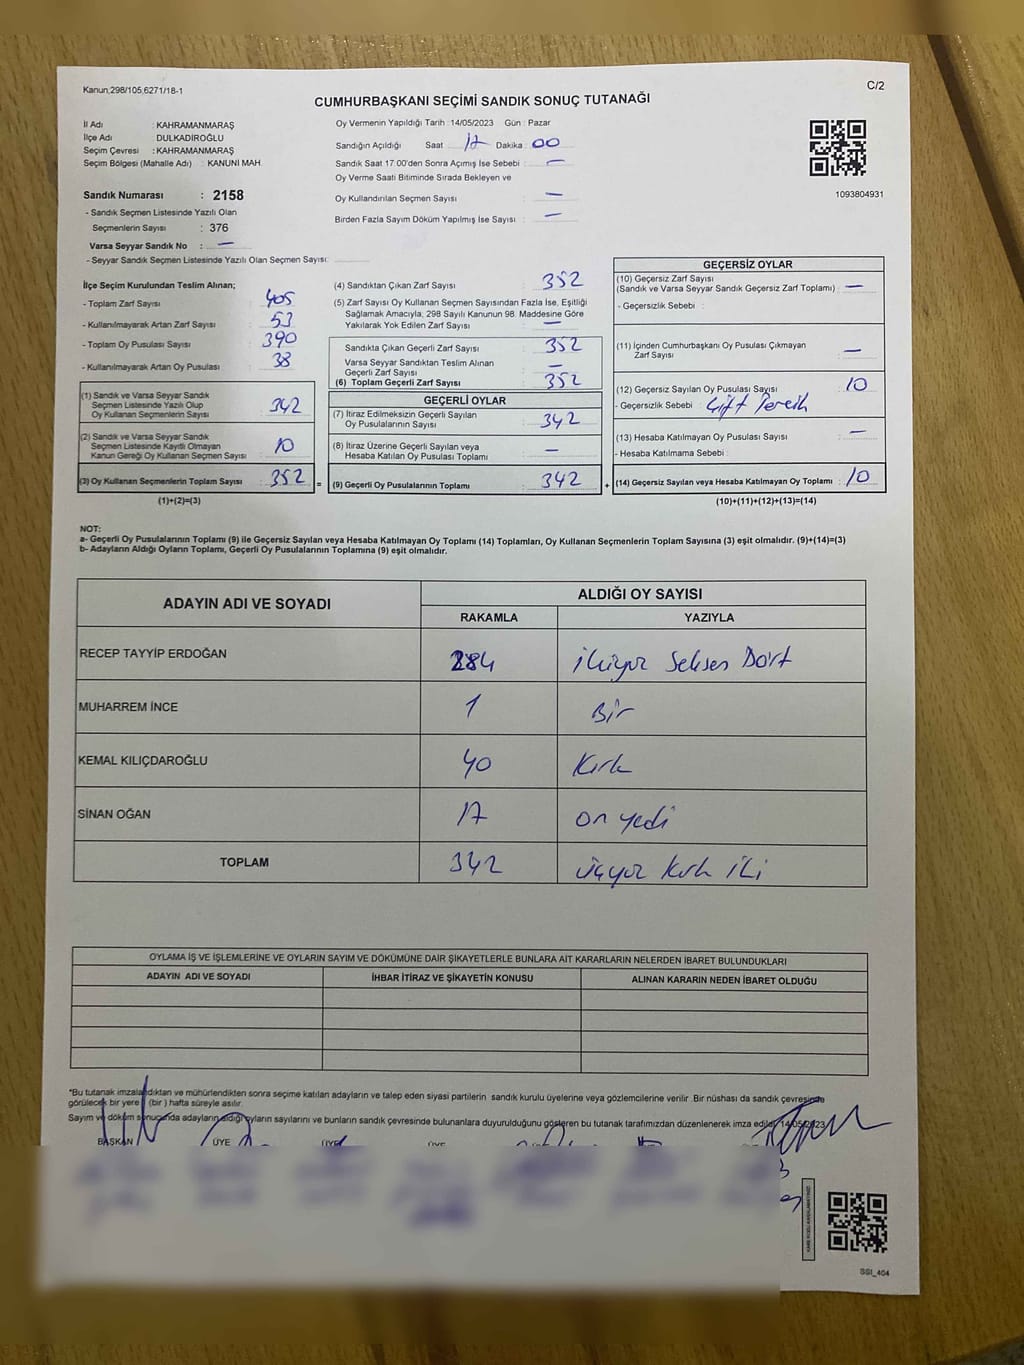 Kanun,298/105,6271/18-1
C/2
CUMHURBAŞKANI SEÇİMİ SANDIK SONUÇ TUTANAĞI
İl Adı : KAHRAMANMARAŞ
İlçe Adı : DULKADİROĞLU
Seçim Çevresi : KAHRAMANMARAŞ
Seçim Bölgesi (Mahalle Adı) : KANUNİ MAH.
Sandık Numarası : 2158
- Sandık Seçmen Listesinde Yazılı Olan
Seçmenlerin Sayısı : 376
Varsa Seyyar Sandık No : —
- Seyyar Sandık Seçmen Listesinde Yazılı Olan Seçmen Sayısı:
Oy Vermenin Yapıldığı Tarih : 14/05/2023 Gün : Pazar
Sandığın Açıldığı Saat 17 Dakika : 00
Sandık Saat 17:00'den Sonra Açımış İse Sebebi : —
Oy Verme Saati Bitiminde Sırada Bekleyen ve
Oy Kullandırılan Seçmen Sayısı : —
Birden Fazla Sayım Döküm Yapılmış İse Sayısı : —
1093804931
İlçe Seçim Kurulundan Teslim Alınan;
- Toplam Zarf Sayısı : 405
- Kullanılmayarak Artan Zarf Sayısı : 53
- Toplam Oy Pusulası Sayısı : 390
- Kullanılmayarak Artan Oy Pusulası : 38
(1) Sandık ve Varsa Seyyar Sandık
Seçmen Listesinde Yazılı Olup
Oy Kullanan Seçmenlerin Sayısı : 342
(2) Sandık ve Varsa Seyyar Sandık
Seçmen Listesinde Kayıtlı Olmayan
Kanun Gereği Oy Kullanan Seçmen Sayısı : 10
(3) Oy Kullanan Seçmenlerin Toplam Sayısı : 352 =
(1)+(2)=(3)
(4) Sandıktan Çıkan Zarf Sayısı : 352
(5) Zarf Sayısı Oy Kullanan Seçmen Sayısından Fazla İse, Eşitliği
Sağlamak Amacıyla, 298 Sayılı Kanunun 98. Maddesine Göre
Yakılarak Yok Edilen Zarf Sayısı : —
Sandıkta Çıkan Geçerli Zarf Sayısı : 352
Varsa Seyyar Sandıktan Teslim Alınan
Geçerli Zarf Sayısı : —
(6) Toplam Geçerli Zarf Sayısı : 352
GEÇERLİ OYLAR
(7) İtiraz Edilmeksizin Geçerli Sayılan
Oy Pusulalarının Sayısı : 342
(8) İtiraz Üzerine Geçerli Sayılan veya
Hesaba Katılan Oy Pusulası Toplamı : —
(9) Geçerli Oy Pusulalarının Toplamı : 342 +
GEÇERSİZ OYLAR
(10) Geçersiz Zarf Sayısı
(Sandık ve Varsa Seyyar Sandık Geçersiz Zarf Toplamı) : —
- Geçersizlik Sebebi :
(11) İçinden Cumhurbaşkanı Oy Pusulası Çıkmayan
Zarf Sayısı : —
(12) Geçersiz Sayılan Oy Pusulası Sayısı : 10
- Geçersizlik Sebebi : Çift Tercih
(13) Hesaba Katılmayan Oy Pusulası Sayısı : —
- Hesaba Katılmama Sebebi :
(14) Geçersiz Sayılan veya Hesaba Katılmayan Oy Toplamı : 10
(10)+(11)+(12)+(13)=(14)
NOT:
a- Geçerli Oy Pusulalarının Toplamı (9) ile Geçersiz Sayılan veya Hesaba Katılmayan Oy Toplamı (14) Toplamları, Oy Kullanan Seçmenlerin Toplam Sayısına (3) eşit olmalıdır. (9)+(14)=(3)
b- Adayların Aldığı Oyların Toplamı, Geçerli Oy Pusulalarının Toplamına (9) eşit olmalıdır.
ADAYIN ADI VE SOYADI ALDIĞI OY SAYISI
RAKAMLA YAZIYLA
RECEP TAYYİP ERDOĞAN 284 ikiyüz Seksen Dört
MUHARREM İNCE 1 Bir
KEMAL KILIÇDAROĞLU 40 Kırk
SİNAN OĞAN 17 on yedi
TOPLAM 342 üçyüz Kırk iki
OYLAMA İŞ VE İŞLEMLERİNE VE OYLARIN SAYIM VE DÖKÜMÜNE DAİR ŞİKAYETLERLE BUNLARA AİT KARARLARIN NELERDEN İBARET BULUNDUKLARI
ADAYIN ADI VE SOYADI İHBAR İTİRAZ VE ŞİKAYETİN KONUSU ALINAN KARARIN NEDEN İBARET OLDUĞU
*Bu tutanak imzalandıktan ve mühürlendikten sonra seçime katılan adayların ve talep eden siyasi partilerin sandık kurulu üyelerine veya gözlemcilerine verilir .Bir nüshası da sandık çevresinde
görülecek bir yere (bir ) hafta süreyle asılır.
Sayım ve döküm sonucunda adayların aldığı oyların sayılarını ve bunların sandık çevresinde bulunanlara duyurulduğunu gösteren bu tutanak tarafımızdan düzenlenerek imza edildi. 14/05/2023
BAŞKAN ÜYE ÜYE ÜYE
SSI_404